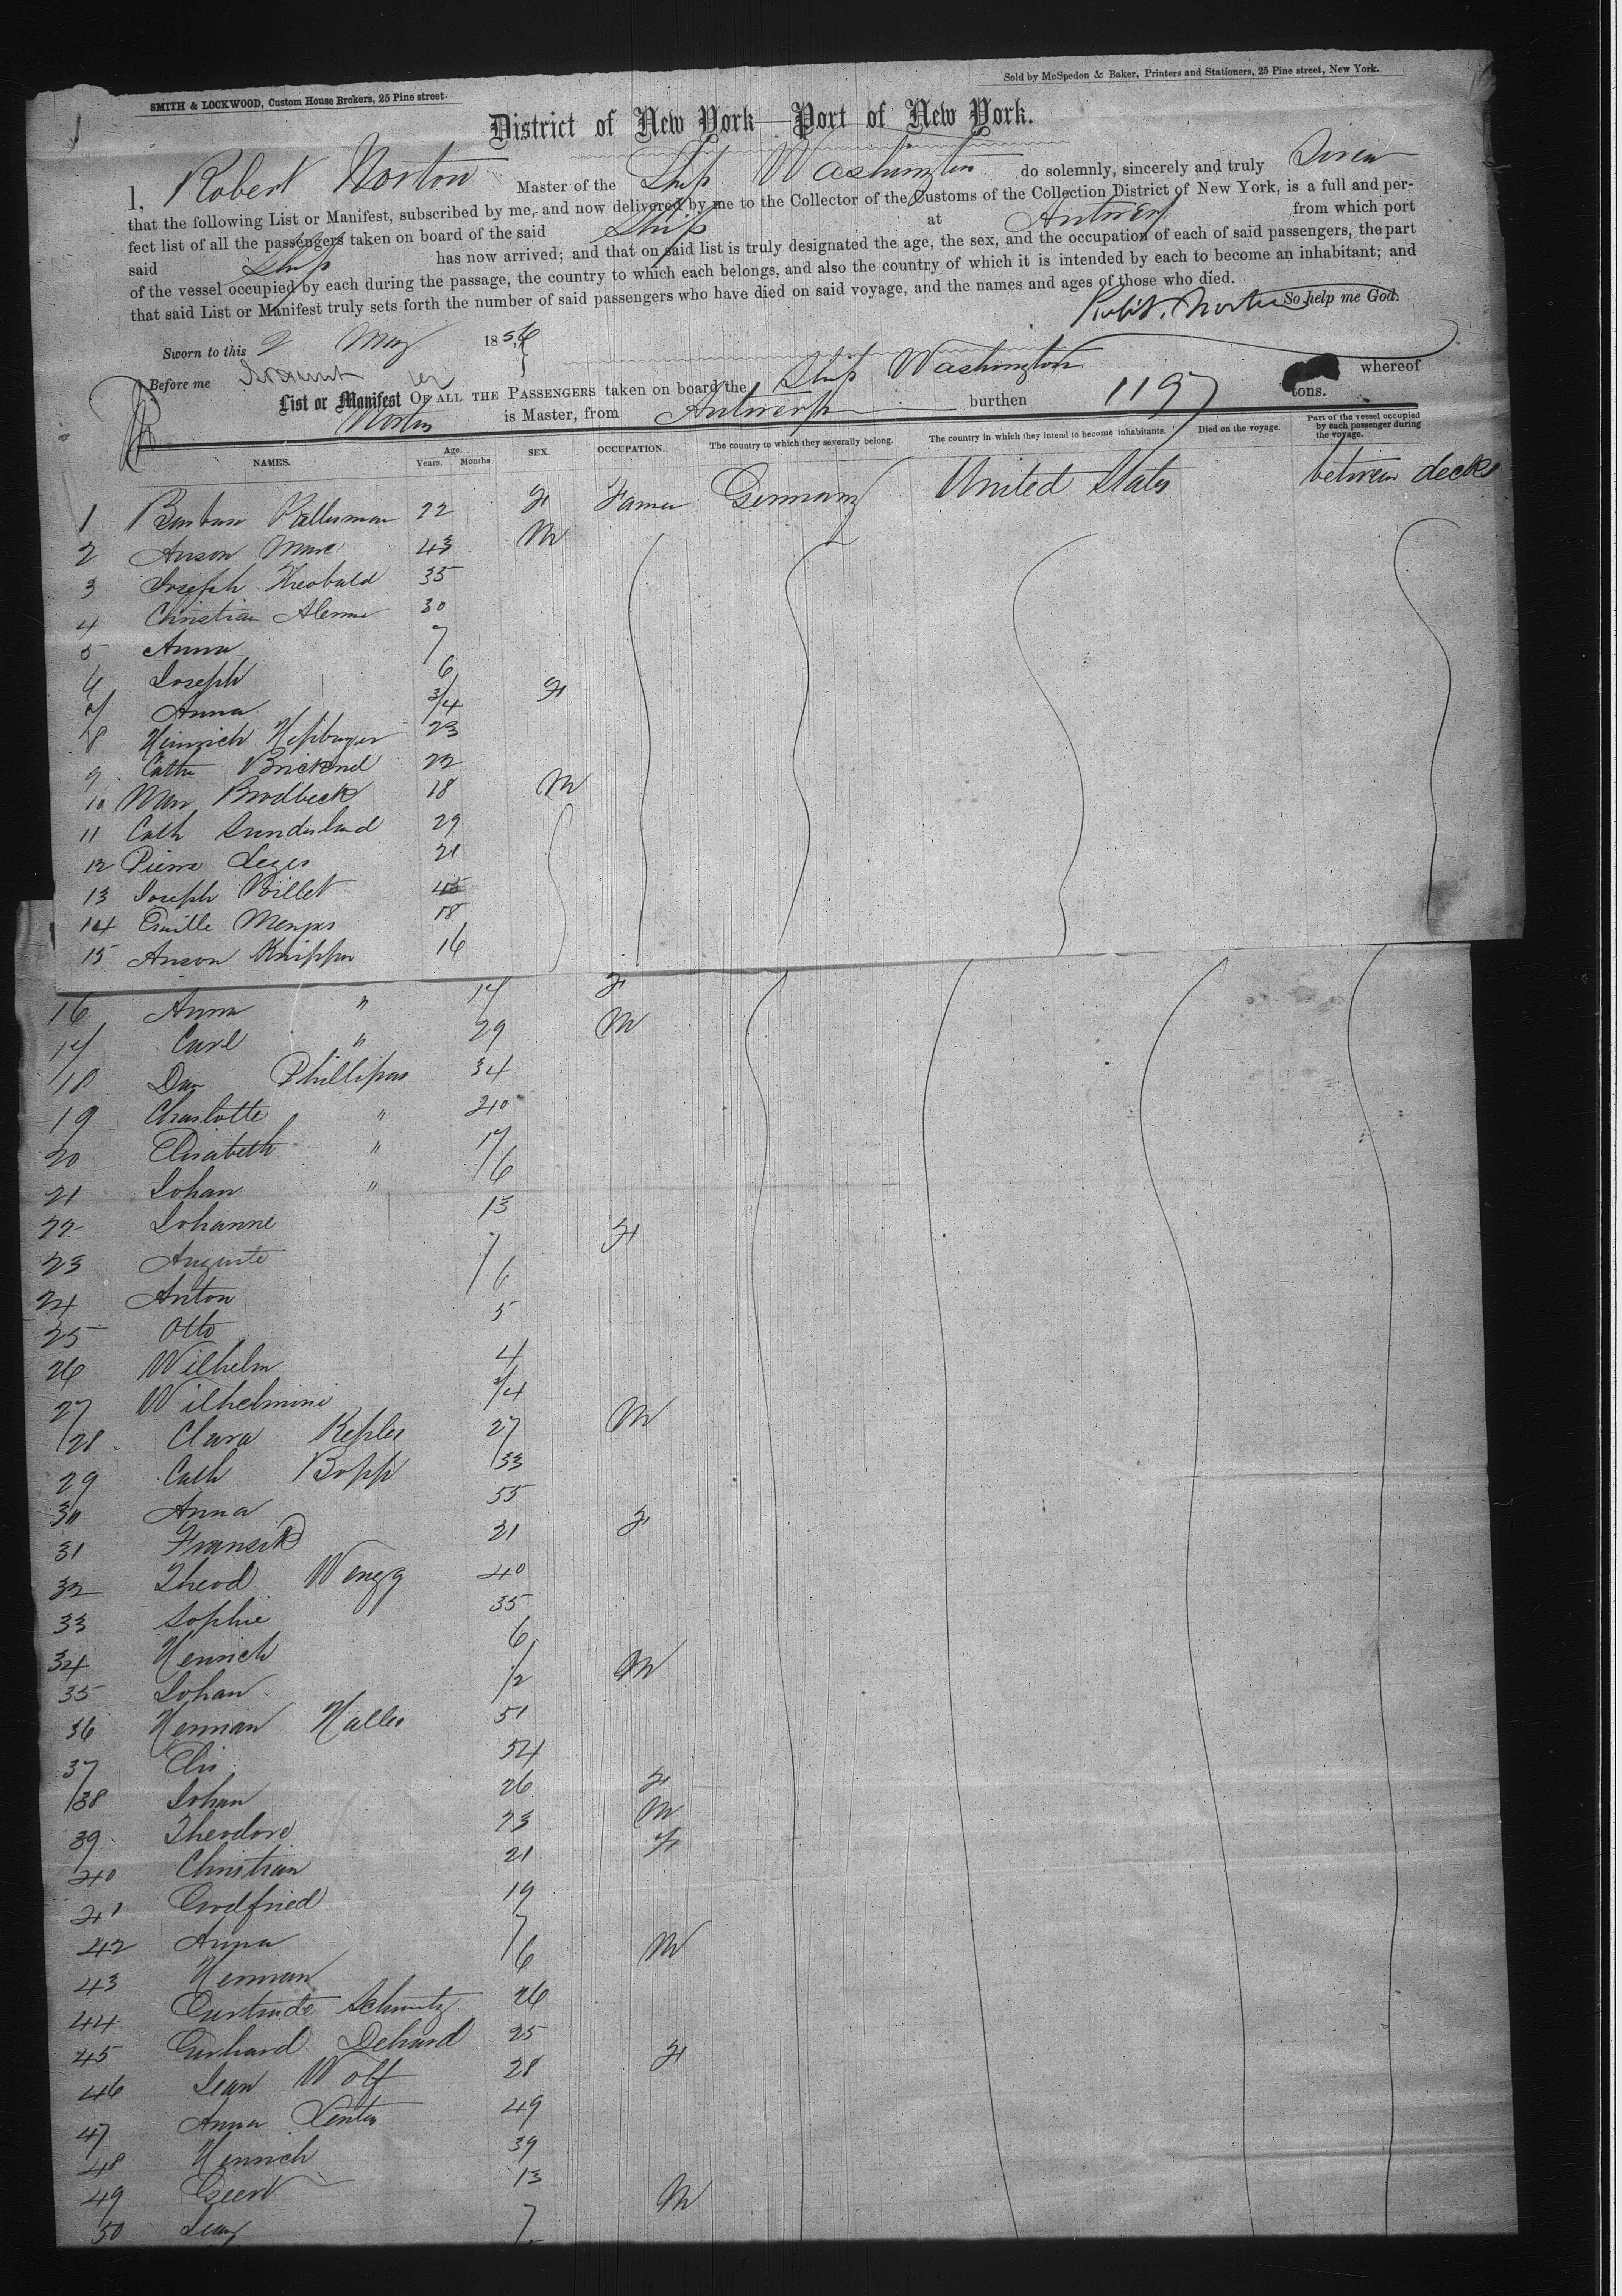 SMITH & LOCKWOOD, Custom House Brokers, 25 Pine street.
Sold by McSpedon & Baker, Printers and Stationers, 25 Pine street, New York.
District of New York—Port of New York.
I, Robert Norton Master of the Ship Washington do solemnly, sincerely and truly Swear
that the following List or Manifest, subscribed by me, and now delivered by me to the Collector of the Customs of the Collection District of New York, is a full and per-
fect list of all the passengers taken on board of the said Ship at Antwerp from which port
said Ship has now arrived; and that on said list is truly designated the age, the sex, and the occupation of each of said passengers, the part
of the vessel occupied by each during the passage, the country to which each belongs, and also the country of which it is intended by each to become an inhabitant; and
that said List or Manifest truly sets forth the number of said passengers who have died on said voyage, and the names and ages of those who died.
So help me God.
Robt. Norton
Sworn to this 2 May 1856
Before me
List or Manifest OF ALL THE PASSENGERS taken on board the Ship Washington whereof
Norton is Master, from Antwerp burthen 1197 tons.
NAMES. Age. Years. Months SEX. OCCUPATION. The country to which they severally belong. The country in which they intend to become inhabitants. Died on the voyage. Part of the vessel occupied by each passenger during the voyage.
1 Barbara 22 F Farmer Germany United States between decks
2 Anson Marc 43 M
3 Joseph Theobald 35
4 Christian 30
5 Anna 7
6 Joseph 6
7 Anna 3/4 F
8 Heinrich 23
9 Cath 22
10 Brodbeck 18 M
11 Cath Sunderland 29
12 Pierre 21
13 Joseph Billet 45
14 18
15 Anson Knipper 16
16 Anna " 17 F
17 Carl " 29 M
18 Dan Phillipas 34
19 Charlotte " 20
20 Elisabeth " 17
21 Johan " 6
22 Johanne 13
23 Auguste 7 F
24 Anton 6
25 Otto 5
26 Wilhelm 4
27 Wilhelmine /4
28 Clara Kepler 27 M
29 Cath Bopp 33
30 Anna 55
31 21 F
32 Theod 40
33 Sophie 35
34 Henrich 6
35 Johan 1/2 M
36 Herman Haller 51
37 Elis 54
38 Johan 26 F
39 Theodore 23 M
40 Christian 21 F
41 Godfried 19
42 Anna 7
43 Herman 6 M
44 Gertrude Schmitz 26
45 Gerhard Dehard 25
46 Jean Wolf 28 F
47 Anna 49
48 Henrich 39
49 Geert 13 M
50 Jean 7